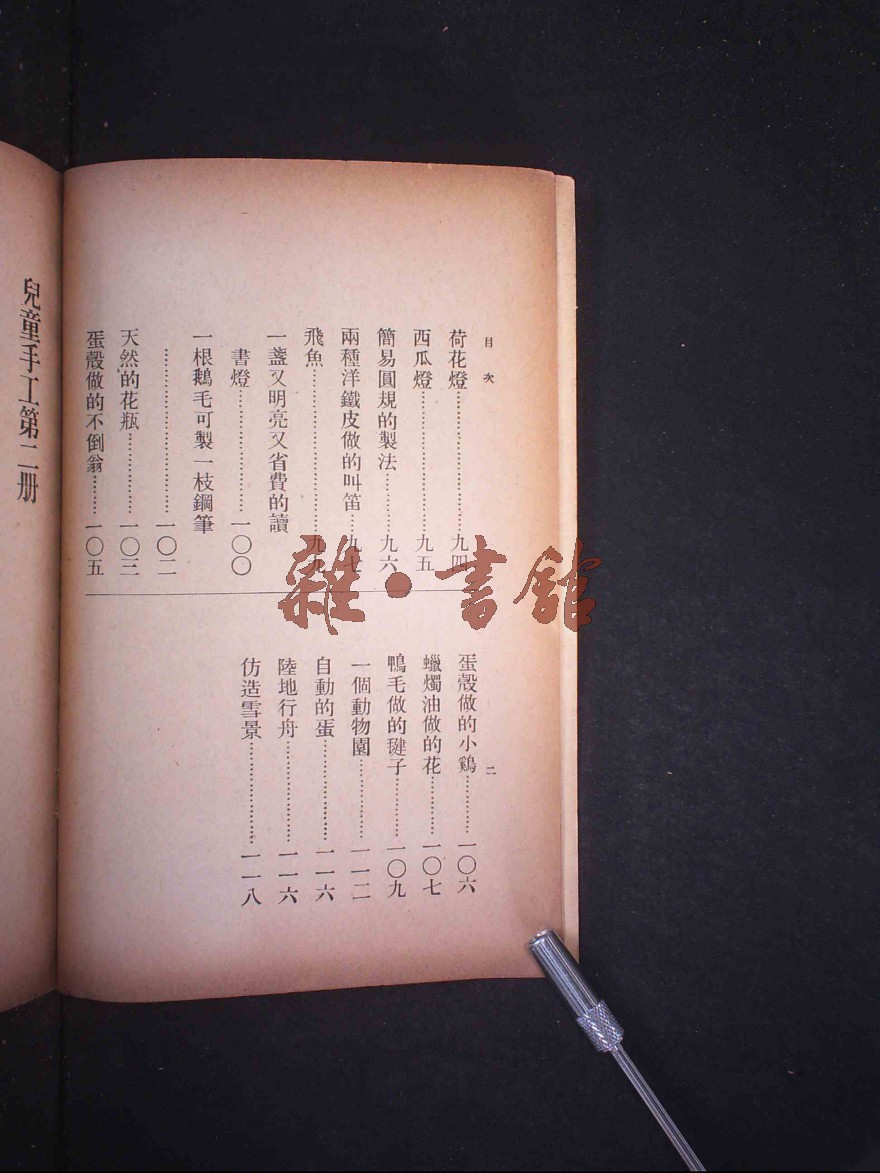 目次
荷花燈……九四
西瓜燈……九五
簡易圓規的製法……九六
兩種洋鐵皮做的叫笛……九七
飛魚……九九
一盞又明亮又省費的讀
書燈……一〇〇
一根鵝毛可製一枝鋼筆
……一〇二
天然的花瓶……一〇三
蛋殼做的不倒翁……一〇五
二
蛋殼做的小鷄……一〇六
蠟燭油做的花……一〇七
鴨毛做的毽子……一〇九
一個動物園……一一二
自動的蛋……一一六
陸地行舟……一一六
仿造雪景……一一八
兒童手工第二册
雜·書館